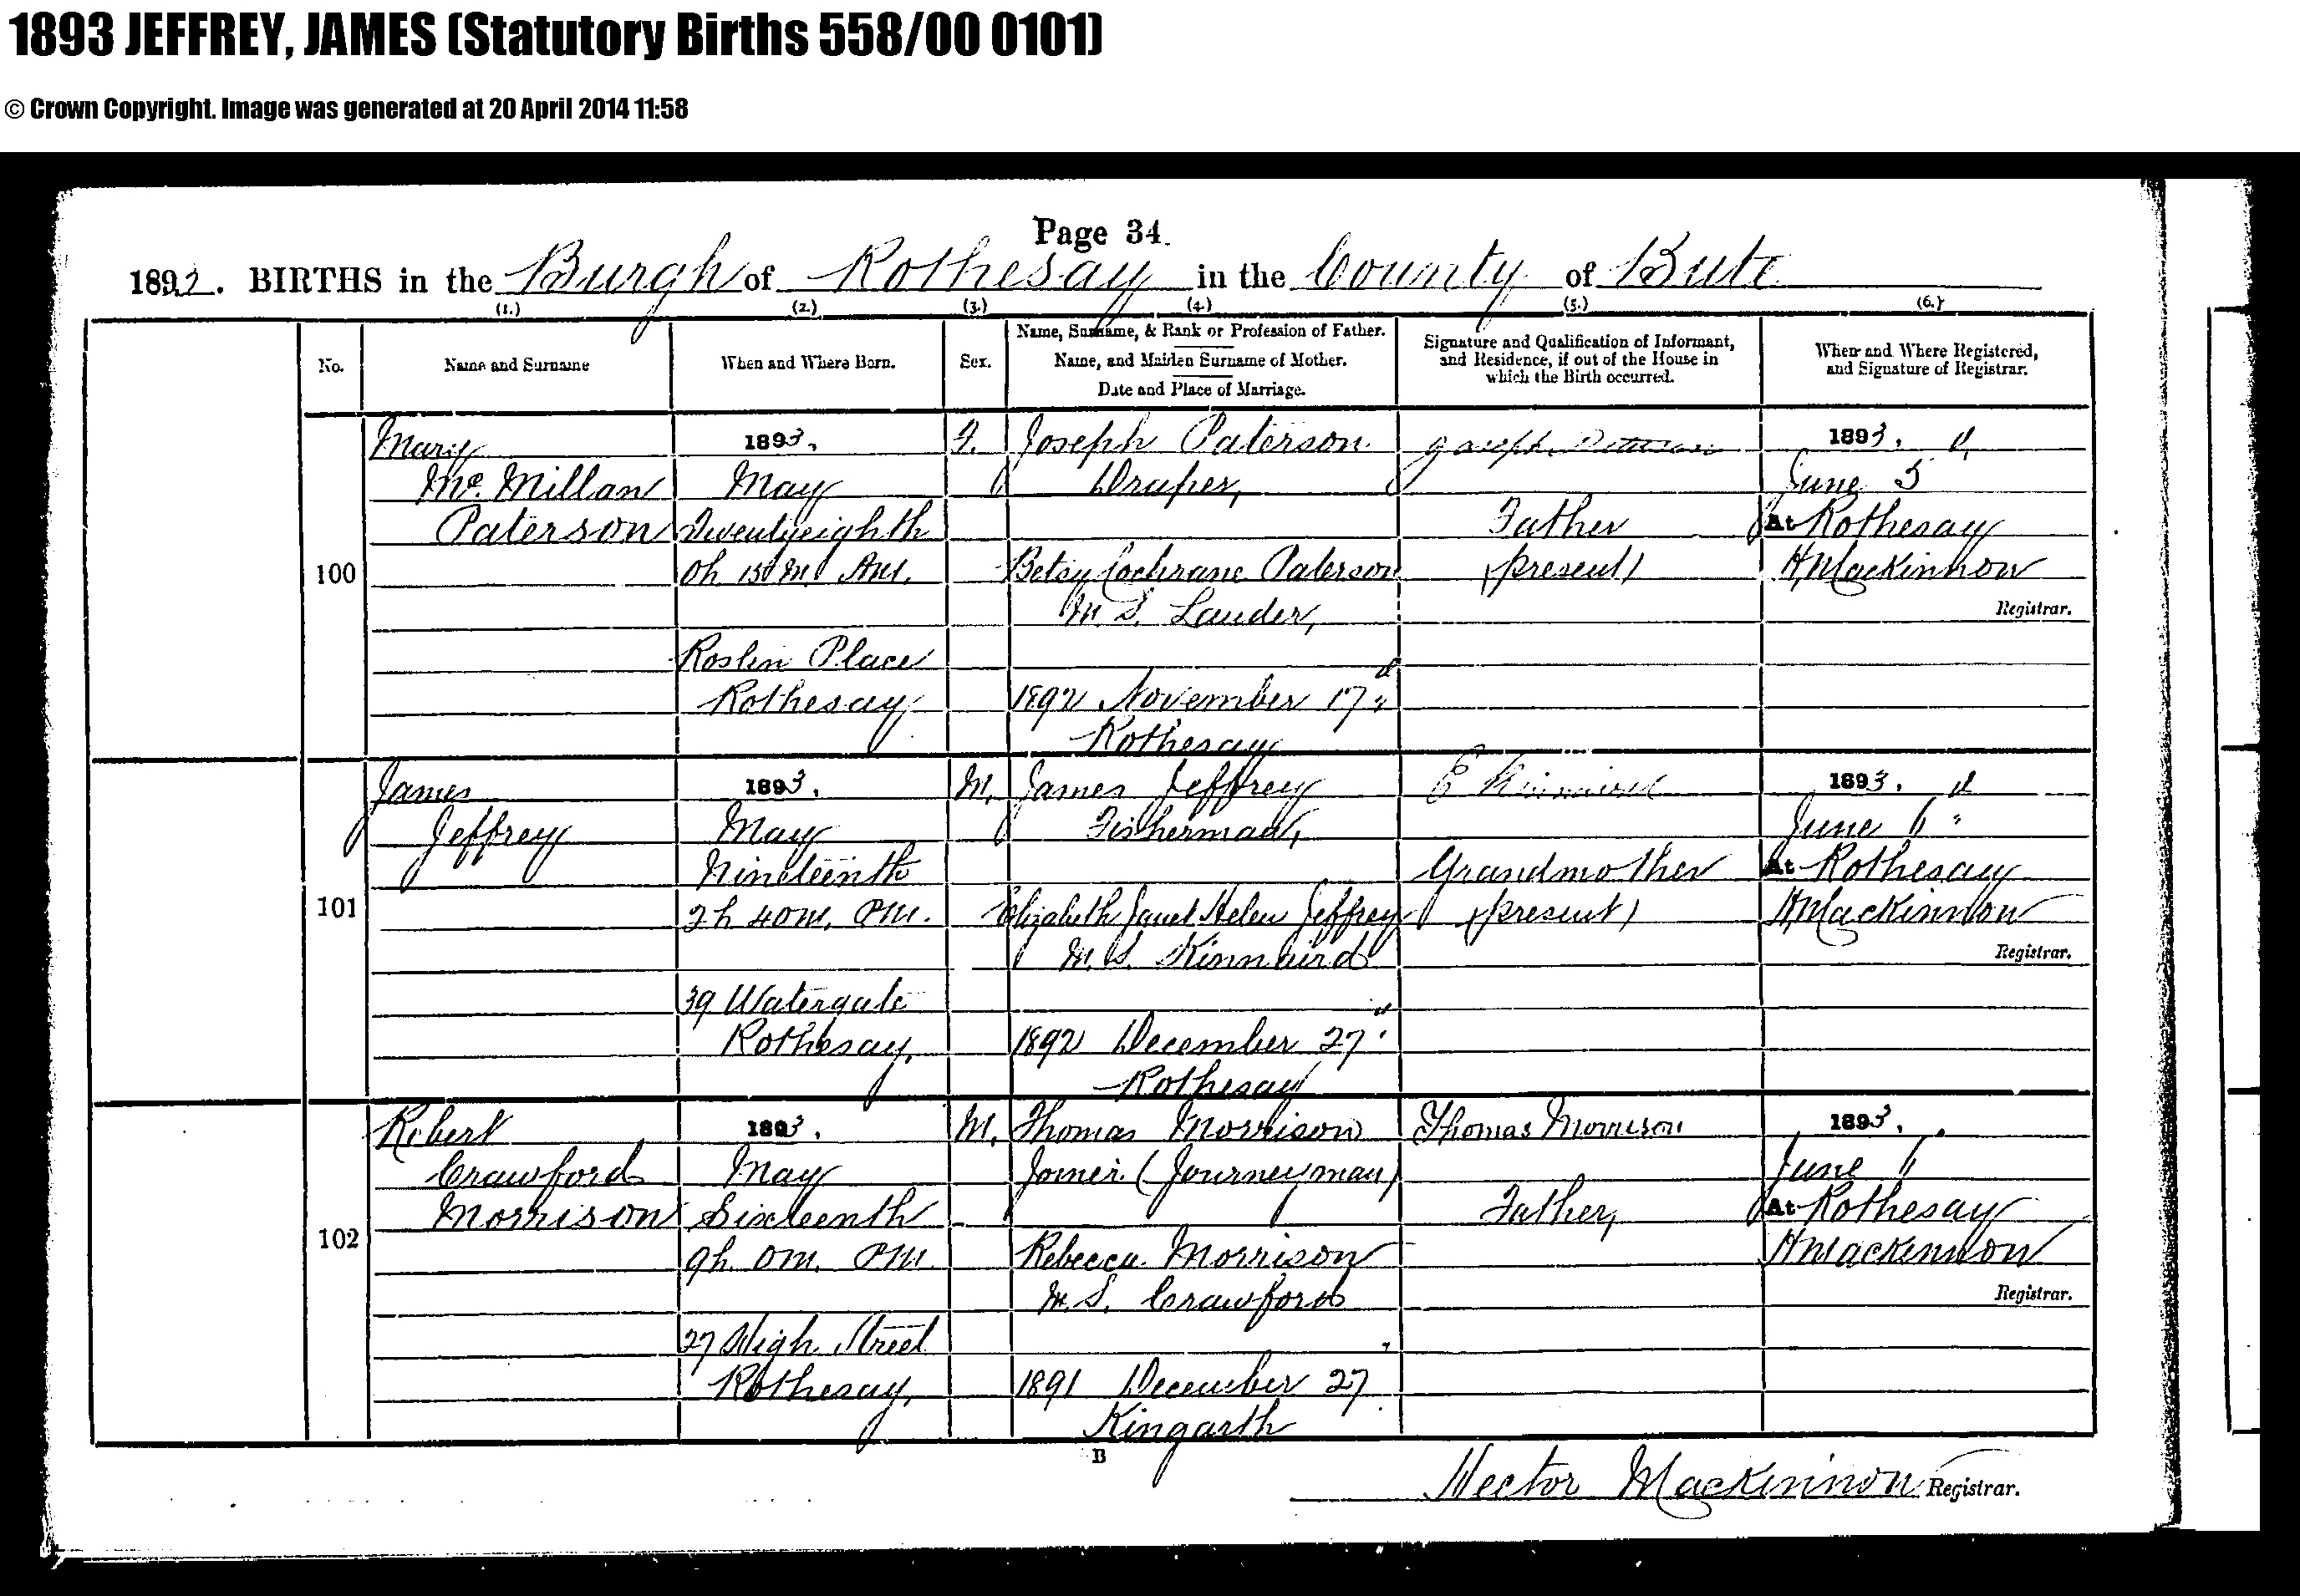 1893 JEFFREY, JAMES (Statutory Births 558/00 0101)
© Crown Copyright. Image was generated at 20 April 2014 11:58
Page 34.
1893. BIRTHS in the Burgh of Rothesay in the County of Bute
(1.) (2.) (3.) (4.) (5.) (6.)
No.
Name and Surname
When and Where Born.
Sex.
Name, Surname, & Rank or Profession of Father.
Name, and Maiden Surname of Mother.
Date and Place of Marriage.
Signature and Qualification of Informant,
and Residence, if out of the House in
which the Birth occurred.
When and Where Registered,
and Signature of Registrar.
100
Mary
Mc. Millan
Paterson
1893,
May
Twentyeighth
0h 15 m. AM.
Roslin Place
Rothesay
F.
Joseph Paterson
Draper,
Betsy Cochrane Paterson
M. S. Lauder,
1892 November 17
Rothesay
Joseph Paterson
Father
(present)
1893.
June 5
At Rothesay
H Mackinnon
Registrar.
101
James
Jeffrey
1893.
May
Nineteenth
2h 40m. PM.
39 Watergate
Rothesay,
M.
James Jeffrey
Fisherman,
Elizabeth Janet Helen Jeffrey
M. S. Kinnaird
1892 December 27
Rothesay
E Kinnaird
Grandmother
(present)
1893.
June 6
At Rothesay
H Mackinnon
Registrar.
102
Robert
Crawford
Morrison
1893.
May
Sixteenth
9h. 0m. PM.
27 High Street
Rothesay,
M.
Thomas Morrison
Joiner (Journeyman)
Rebecca Morrison
M. S. Crawford
1891 December 27
Kingarth
Thomas Morrison
Father,
1893.
June 6
At Rothesay
H Mackinnon
Registrar.
B
Hector Mackinnon Registrar.